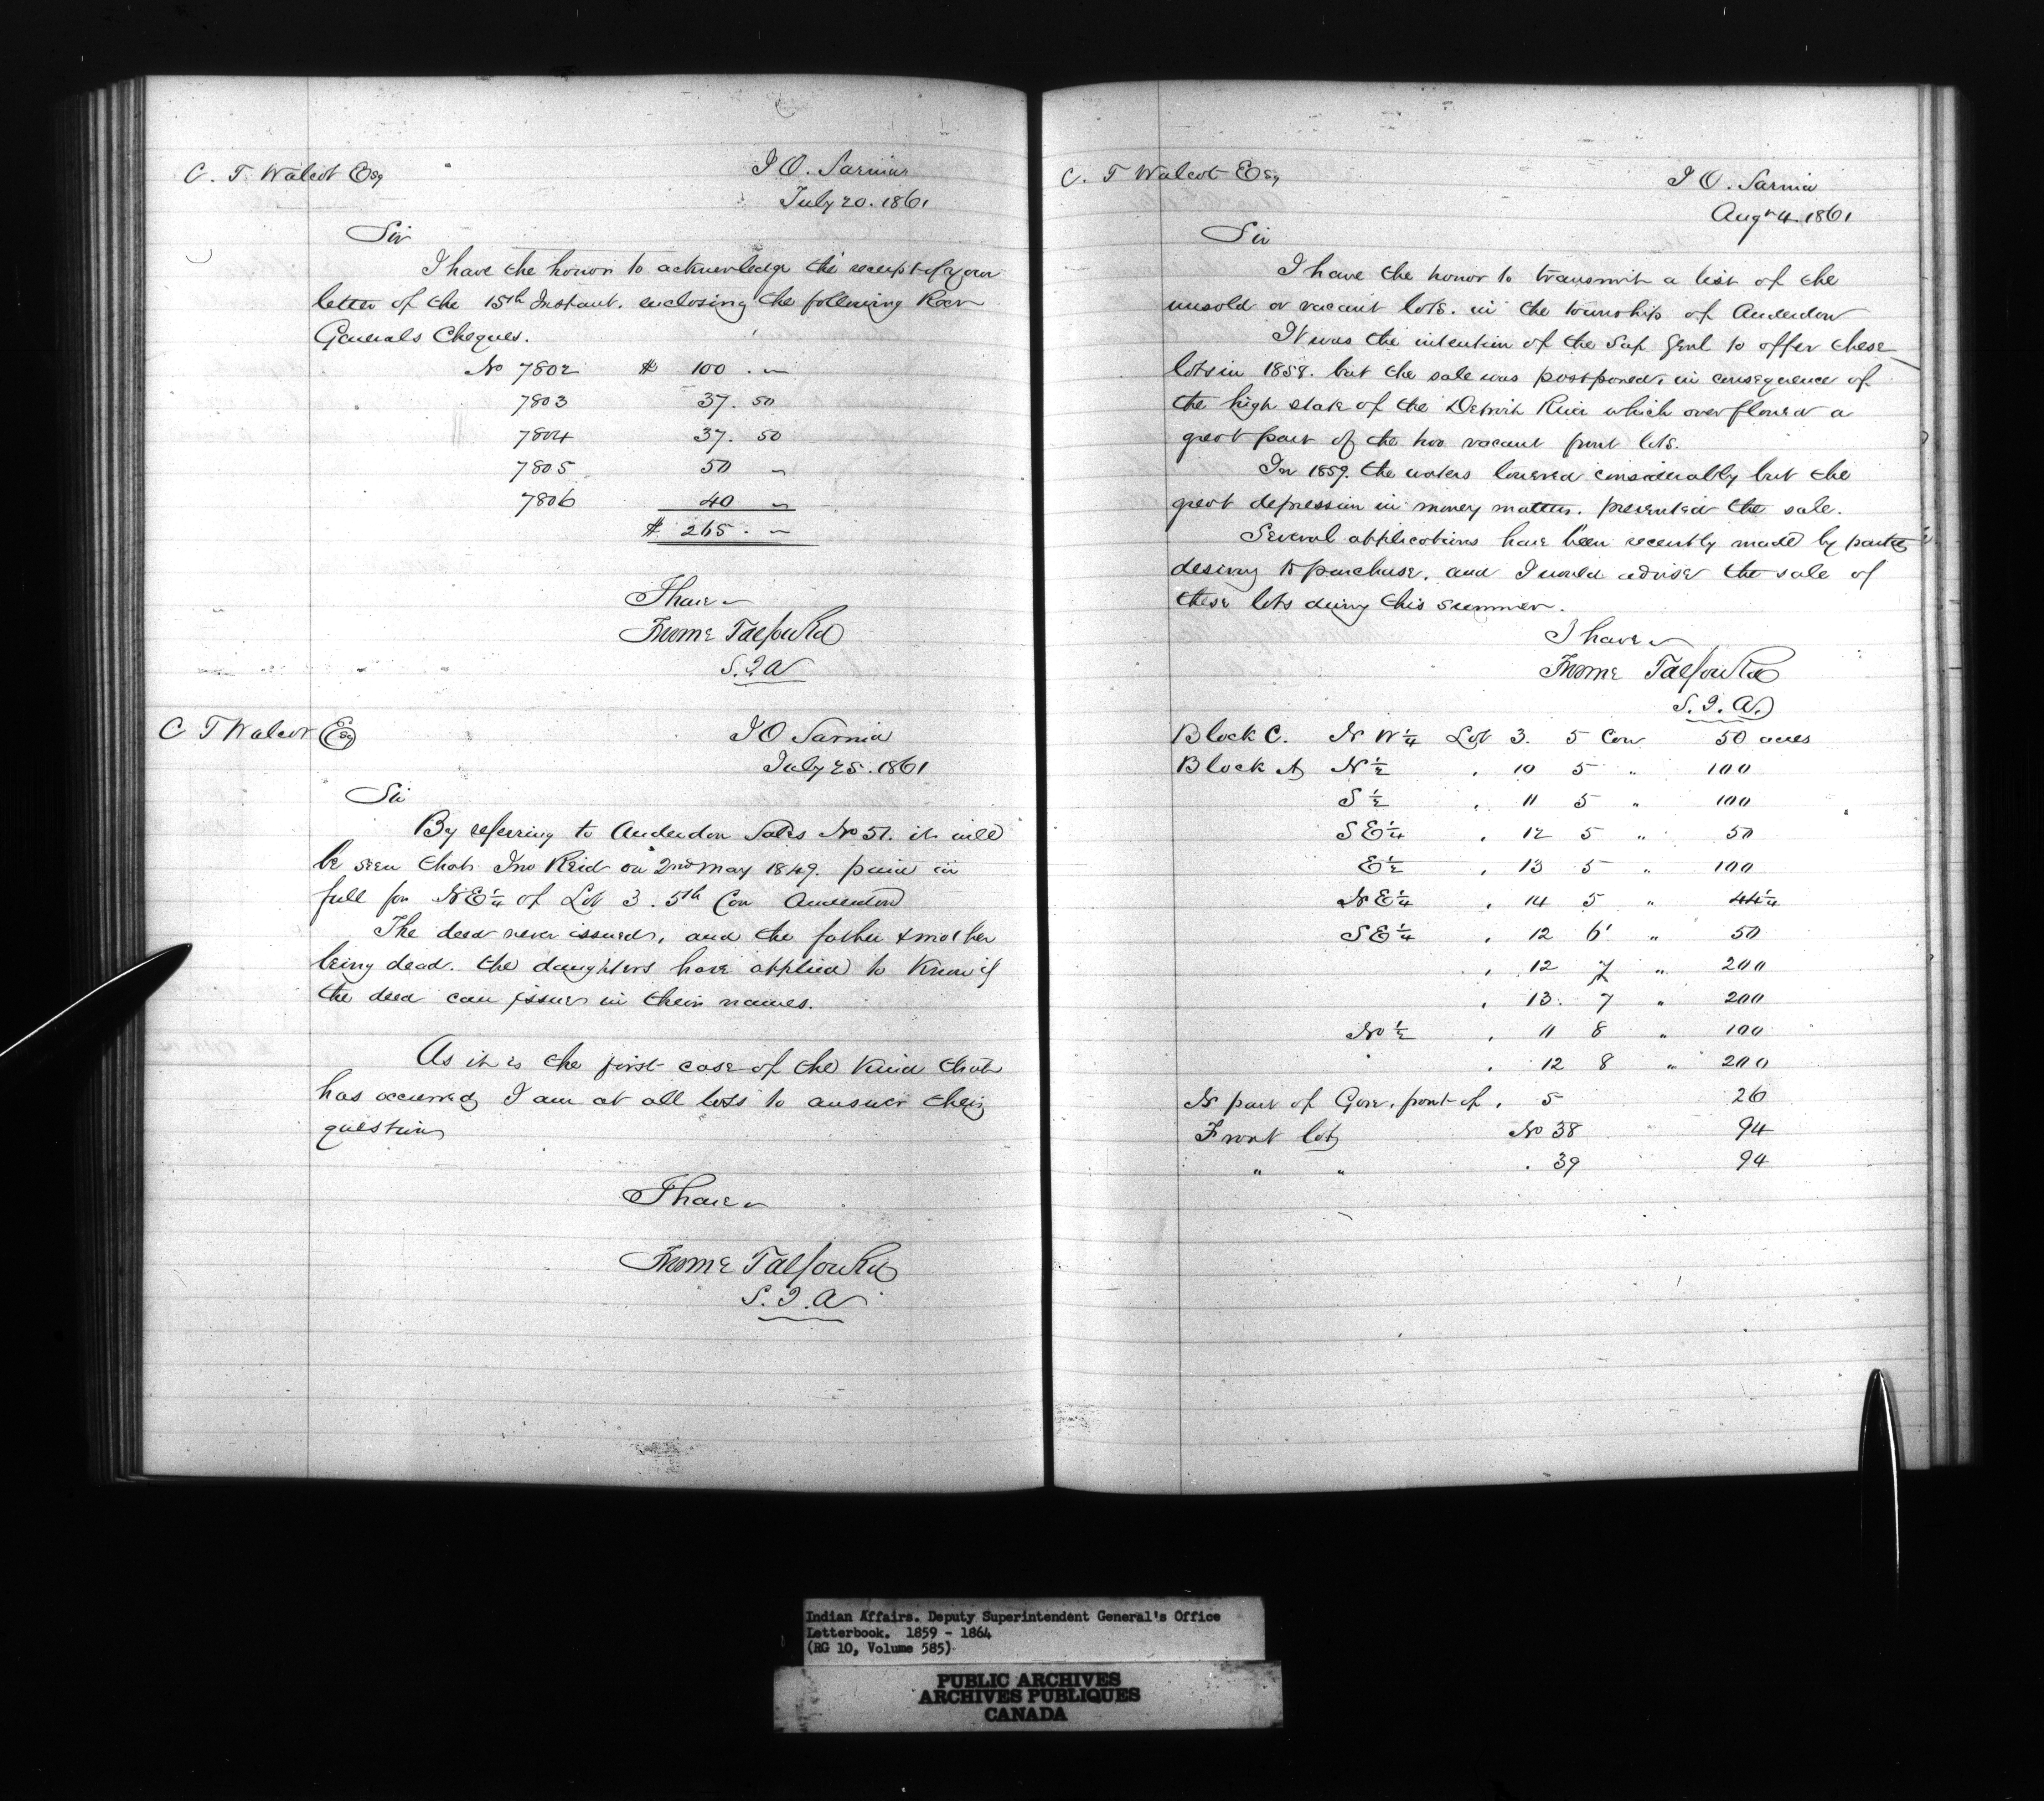 C. T Walcot Esq
I O. Sarnia
July 20. 1861
Sir
I have the honor to acknowledge the receipt of your
letter of the 15th Instant. enclosing the following Recr
Generals Cheques.
No 7802 $ 100 . "
7803 37. 50
7804 37. 50
7805 50 "
7806 40 "
$ 265 . "
I have
Froome Talfourd
S. I A
C T Walcot Esq
I O Sarnia
July 25. 1861
Sir
By referring to Anderdon Sales No 51. it will
be seen that Jno Reid on 2nd May 1849. paid in
full for N E 1/4 of Lot 3. 5th Con Anderdon
The deed never issued, and the father & mother
being dead. the daughters have applied to know if
the deed can issue in their names.
As it is the first case of the kind that
has occurred I am at all loss to answer their
question
I have
Froome Talfourd
S. I. A
C. T Walcot Esq
I O. Sarnia
Augt 4. 1861
Sir
I have the honor to transmit a list of the
unsold or vacant lots. in the township of Anderdon
It was the intention of the Sup Genl to offer these
lots in 1858. but the sale was postponed, in consequence of
the high state of the Detroit River which overflowed a
great part of the two vacant front lots.
In 1859. the waters lowered considerably but the
great depression in money matters. prevented the sale.
Several applications have been recently made by parties
desiring to purchase. and I would advise the sale of
these lots during this summer.
I have
Froome Talfourd
S. I. A.
Block C. N W 1/4 Lot 3. 5 Con 50 acres
Block A N 1/2 " 10 5 " 100
S 1/2 " 11 5 " 100
S E 1/4 " 12 5 " 50
E 1/2 " 13 5 " 100
N E 1/4 " 14 5 " 44 1/4
S E 1/4 " 12 6 " 50
" 12 7 " 200
" 13. 7 " 200
No 1/2 " 11 8 " 100
" 12 8 " 200
N part of Gore. front of " 5 26
Front lots No 38 94
" " " 39 94
Indian Affairs. Deputy Superintendent General's Office
Letterbook. 1859 - 1864
(RG 10, Volume 585)
PUBLIC ARCHIVES
ARCHIVES PUBLIQUES
CANADA